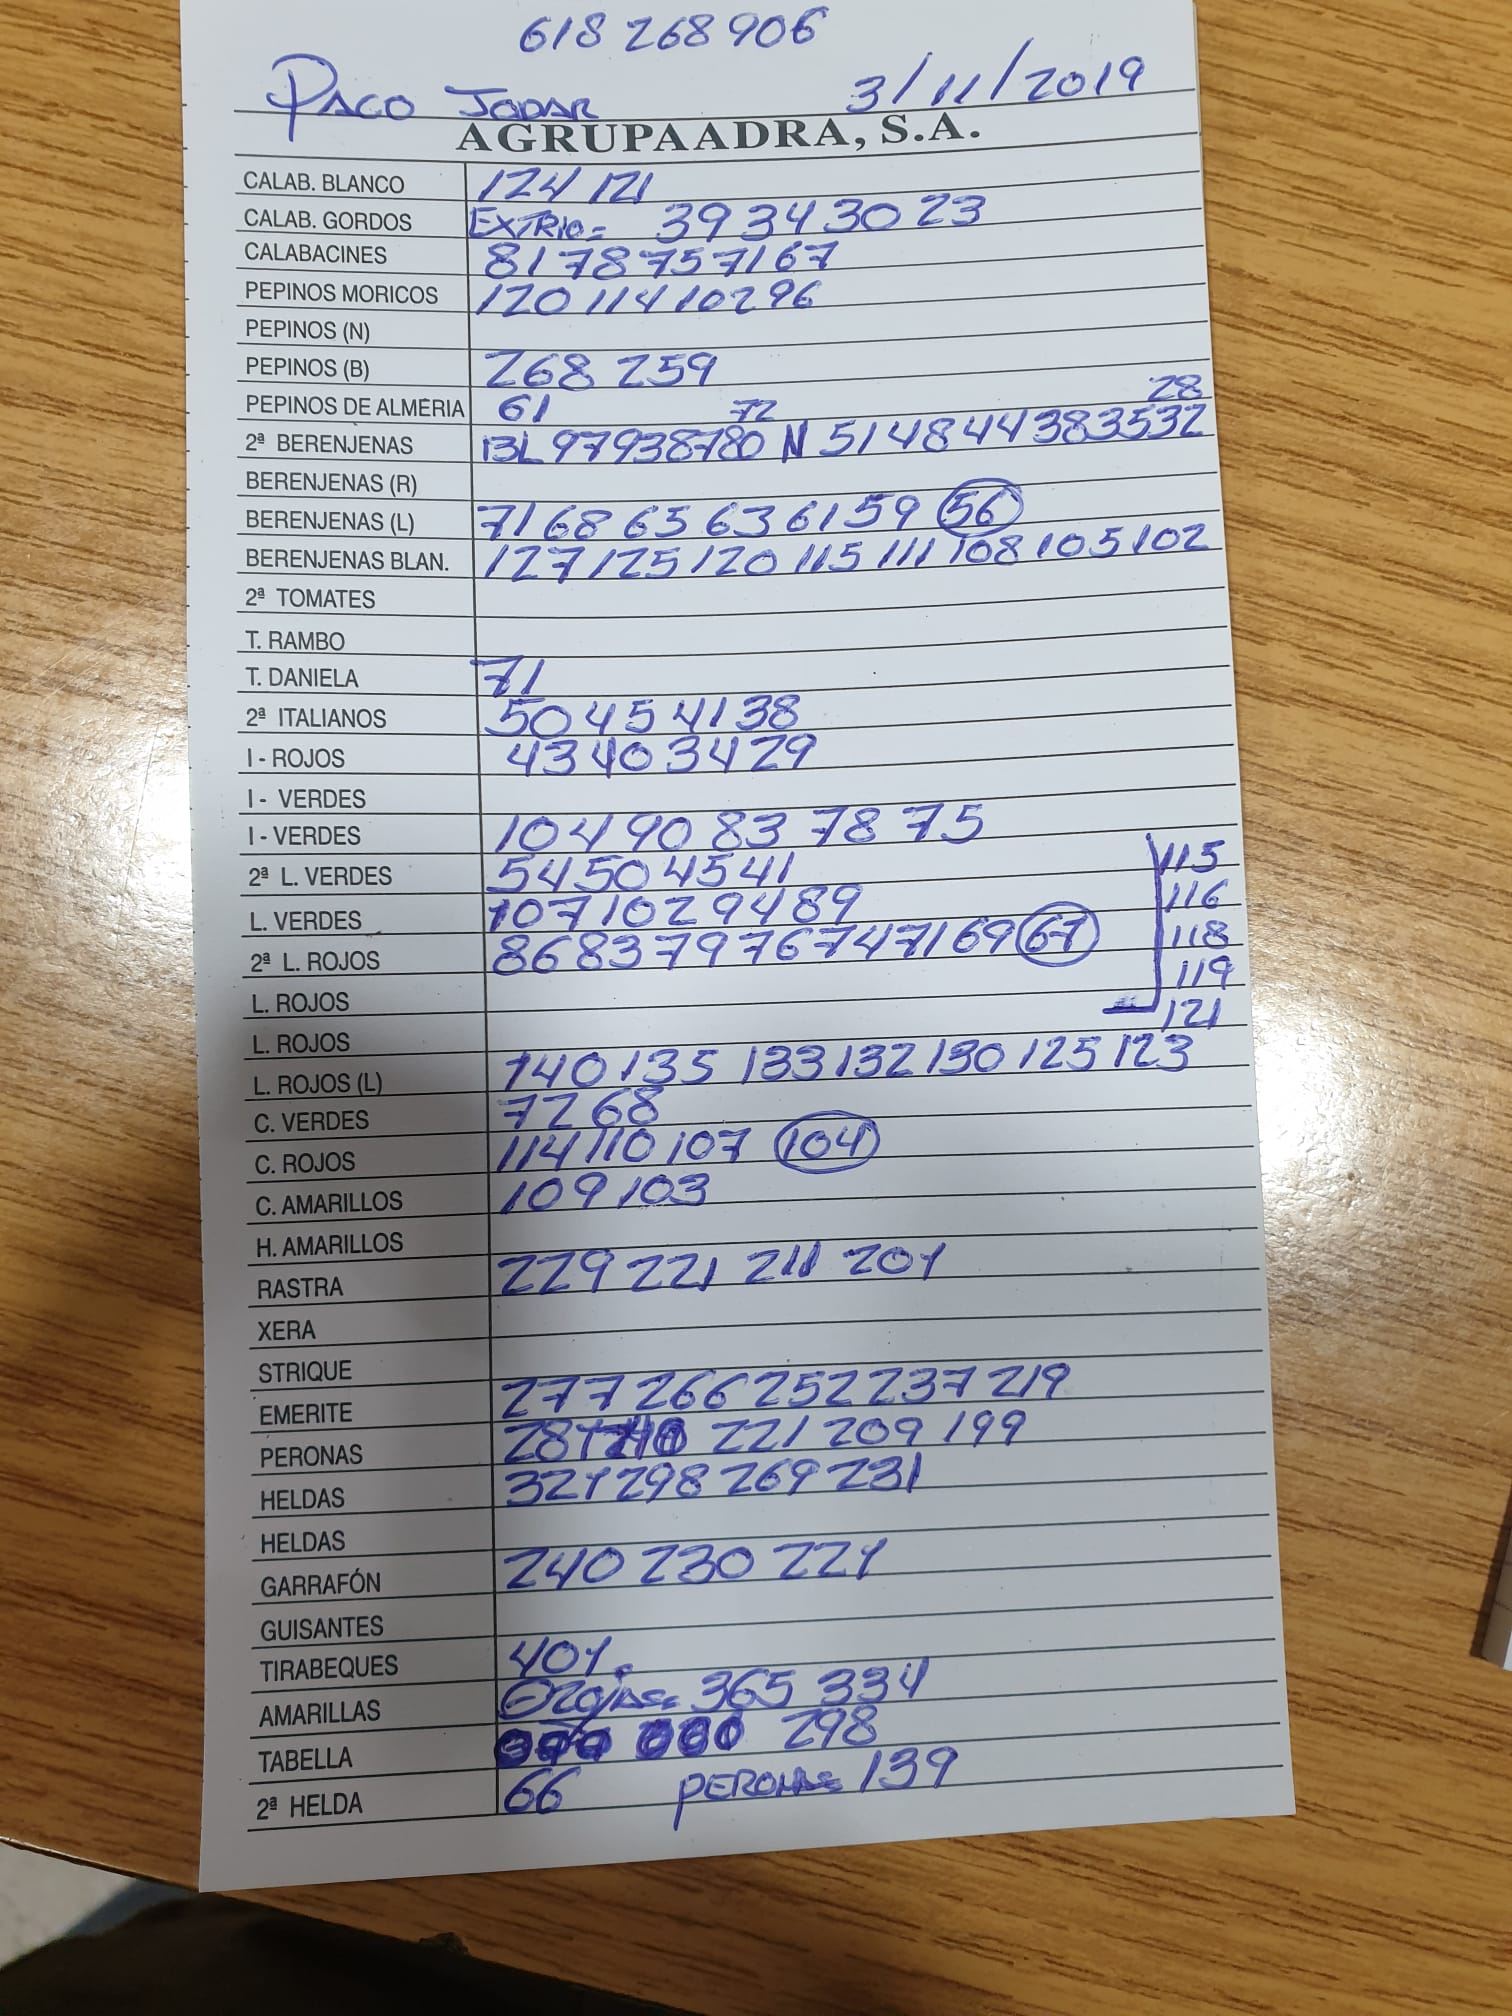 618 268 906
PACO JODAR 3/11/2019
AGRUPAADRA, S.A.
CALAB. BLANCO 124 121
CALAB. GORDOS EXTRIO= 39 34 30 23
CALABACINES 81 78 75 71 67
PEPINOS MORICOS 120 114 102 96
PEPINOS (N)
PEPINOS (B) 268 259
PEPINOS DE ALMERIA 61 72 28
2ª BERENJENAS BL 97 93 87 80 N 51 48 44 38 35 32
BERENJENAS (R)
BERENJENAS (L) 71 68 65 63 61 59 56
BERENJENAS BLAN. 127 125 120 115 111 108 105 102
2ª TOMATES
T. RAMBO
T. DANIELA 71
2ª ITALIANOS 50 45 41 38
I - ROJOS 43 40 34 29
I - VERDES
I - VERDES 104 90 83 78 75
2ª L. VERDES 54 50 45 41 115
L. VERDES 107 102 94 89 116
2ª L. ROJOS 86 83 79 76 74 71 69 67 118
L. ROJOS 119
L. ROJOS 121
L. ROJOS (L) 140 135 133 132 130 125 123
C. VERDES 72 68
C. ROJOS 114 110 107 104
C. AMARILLOS 109 103
H. AMARILLOS
RASTRA 229 221 211 201
XERA
STRIQUE
EMERITE 277 266 252 237 219
PERONAS 281 221 209 199
HELDAS 321 298 269 231
HELDAS
GARRAFÓN 240 230 221
GUISANTES
TIRABEQUES 401
AMARILLAS 365 334
TABELLA 298
2ª HELDA 66 PERONAS 139